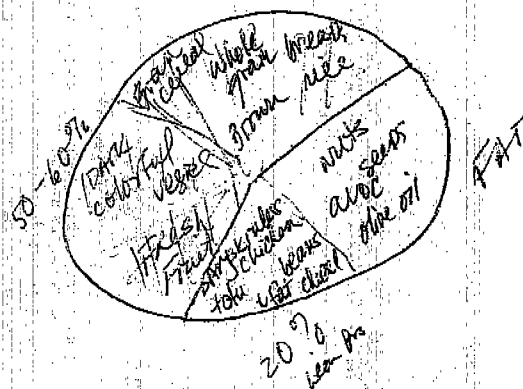 Bran
cereal
whole
grain bread
Brown rice
50-60%
DARK
colorful
veggies
Fresh
Fruit
nuts
seeds
avoc
olive oil
FAT
chicken
tofu beans
20%
lean